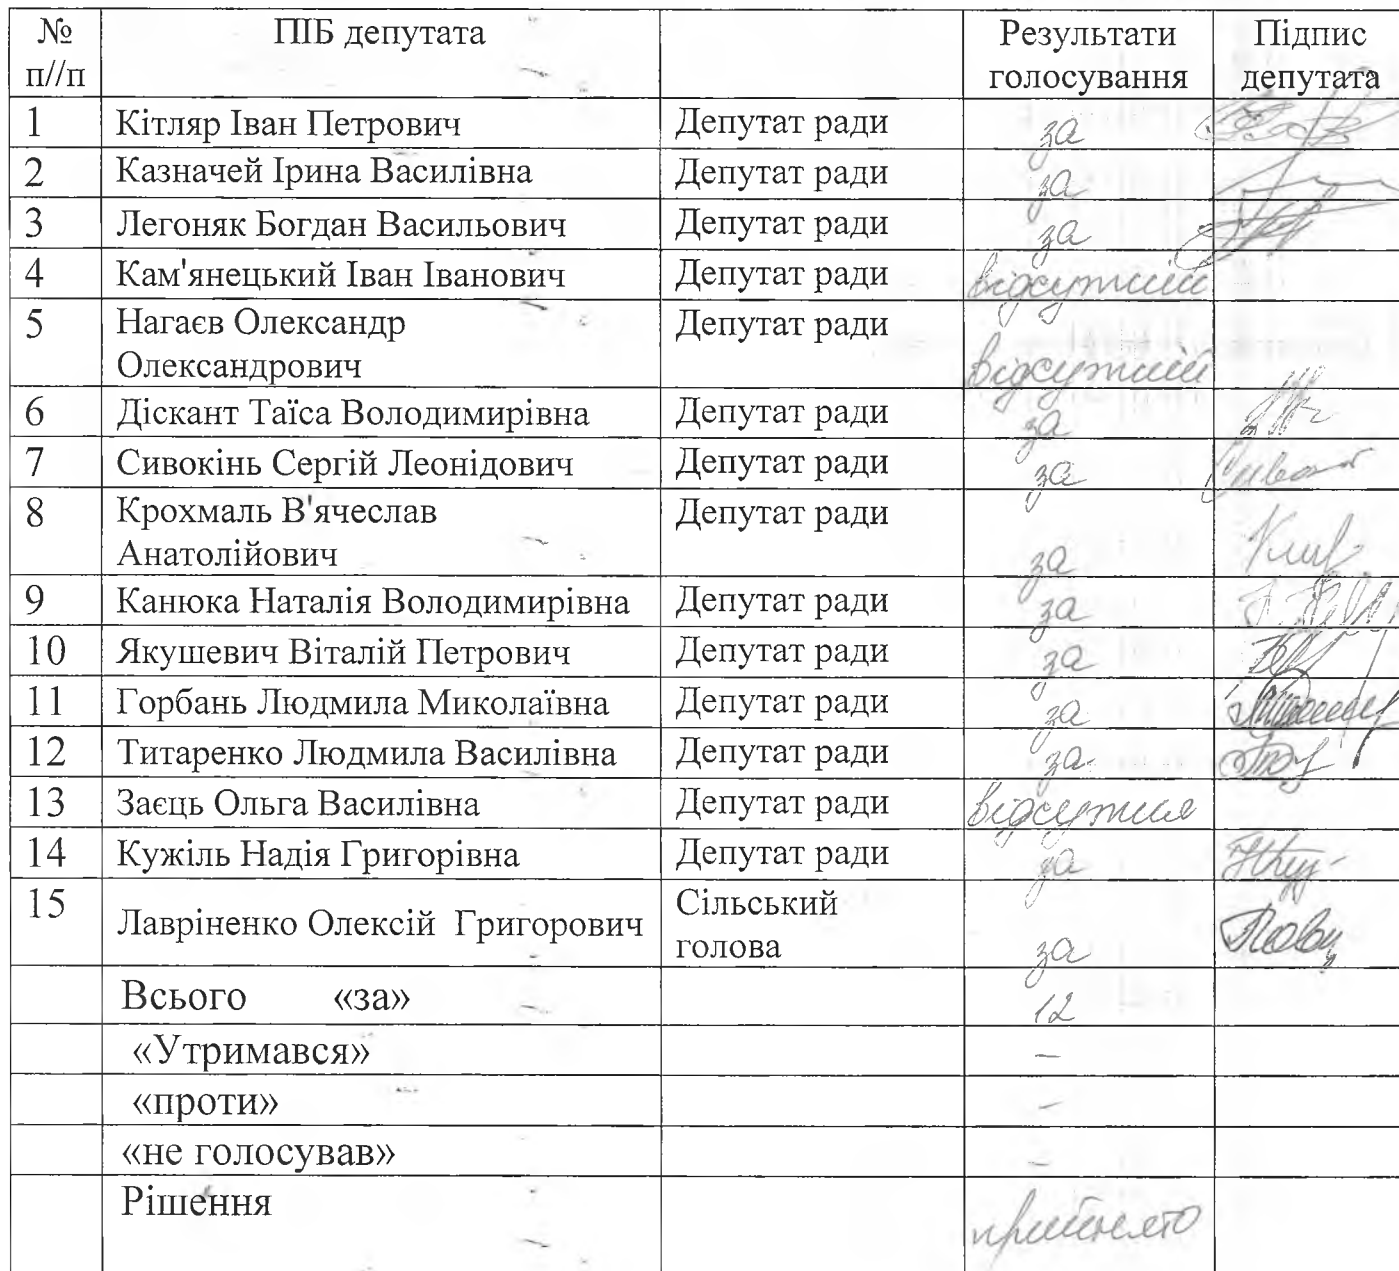 № ПІБ депутата Результати Підпис
п//п голосування депутата
1 Кітляр Іван Петрович Депутат ради за
2 Казначей Ірина Василівна Депутат ради за
3 Легоняк Богдан Васильович Депутат ради за
4 Кам'янецький Іван Іванович Депутат ради відсутній
5 Нагаєв Олександр Депутат ради
Олександрович відсутній
6 Діскант Таїса Володимирівна Депутат ради за
7 Сивокінь Сергій Леонідович Депутат ради за
8 Крохмаль В'ячеслав Депутат ради
Анатолійович за
9 Канюка Наталія Володимирівна Депутат ради за
10 Якушевич Віталій Петрович Депутат ради за
11 Горбань Людмила Миколаївна Депутат ради за
12 Титаренко Людмила Василівна Депутат ради за
13 Заєць Ольга Василівна Депутат ради відсутня
14 Кужіль Надія Григорівна Депутат ради за
15 Лавріненко Олексій Григорович Сільський
голова за
Всього «за» 12
«Утримався» –
«проти» –
«не голосував» –
Рішення прийнято